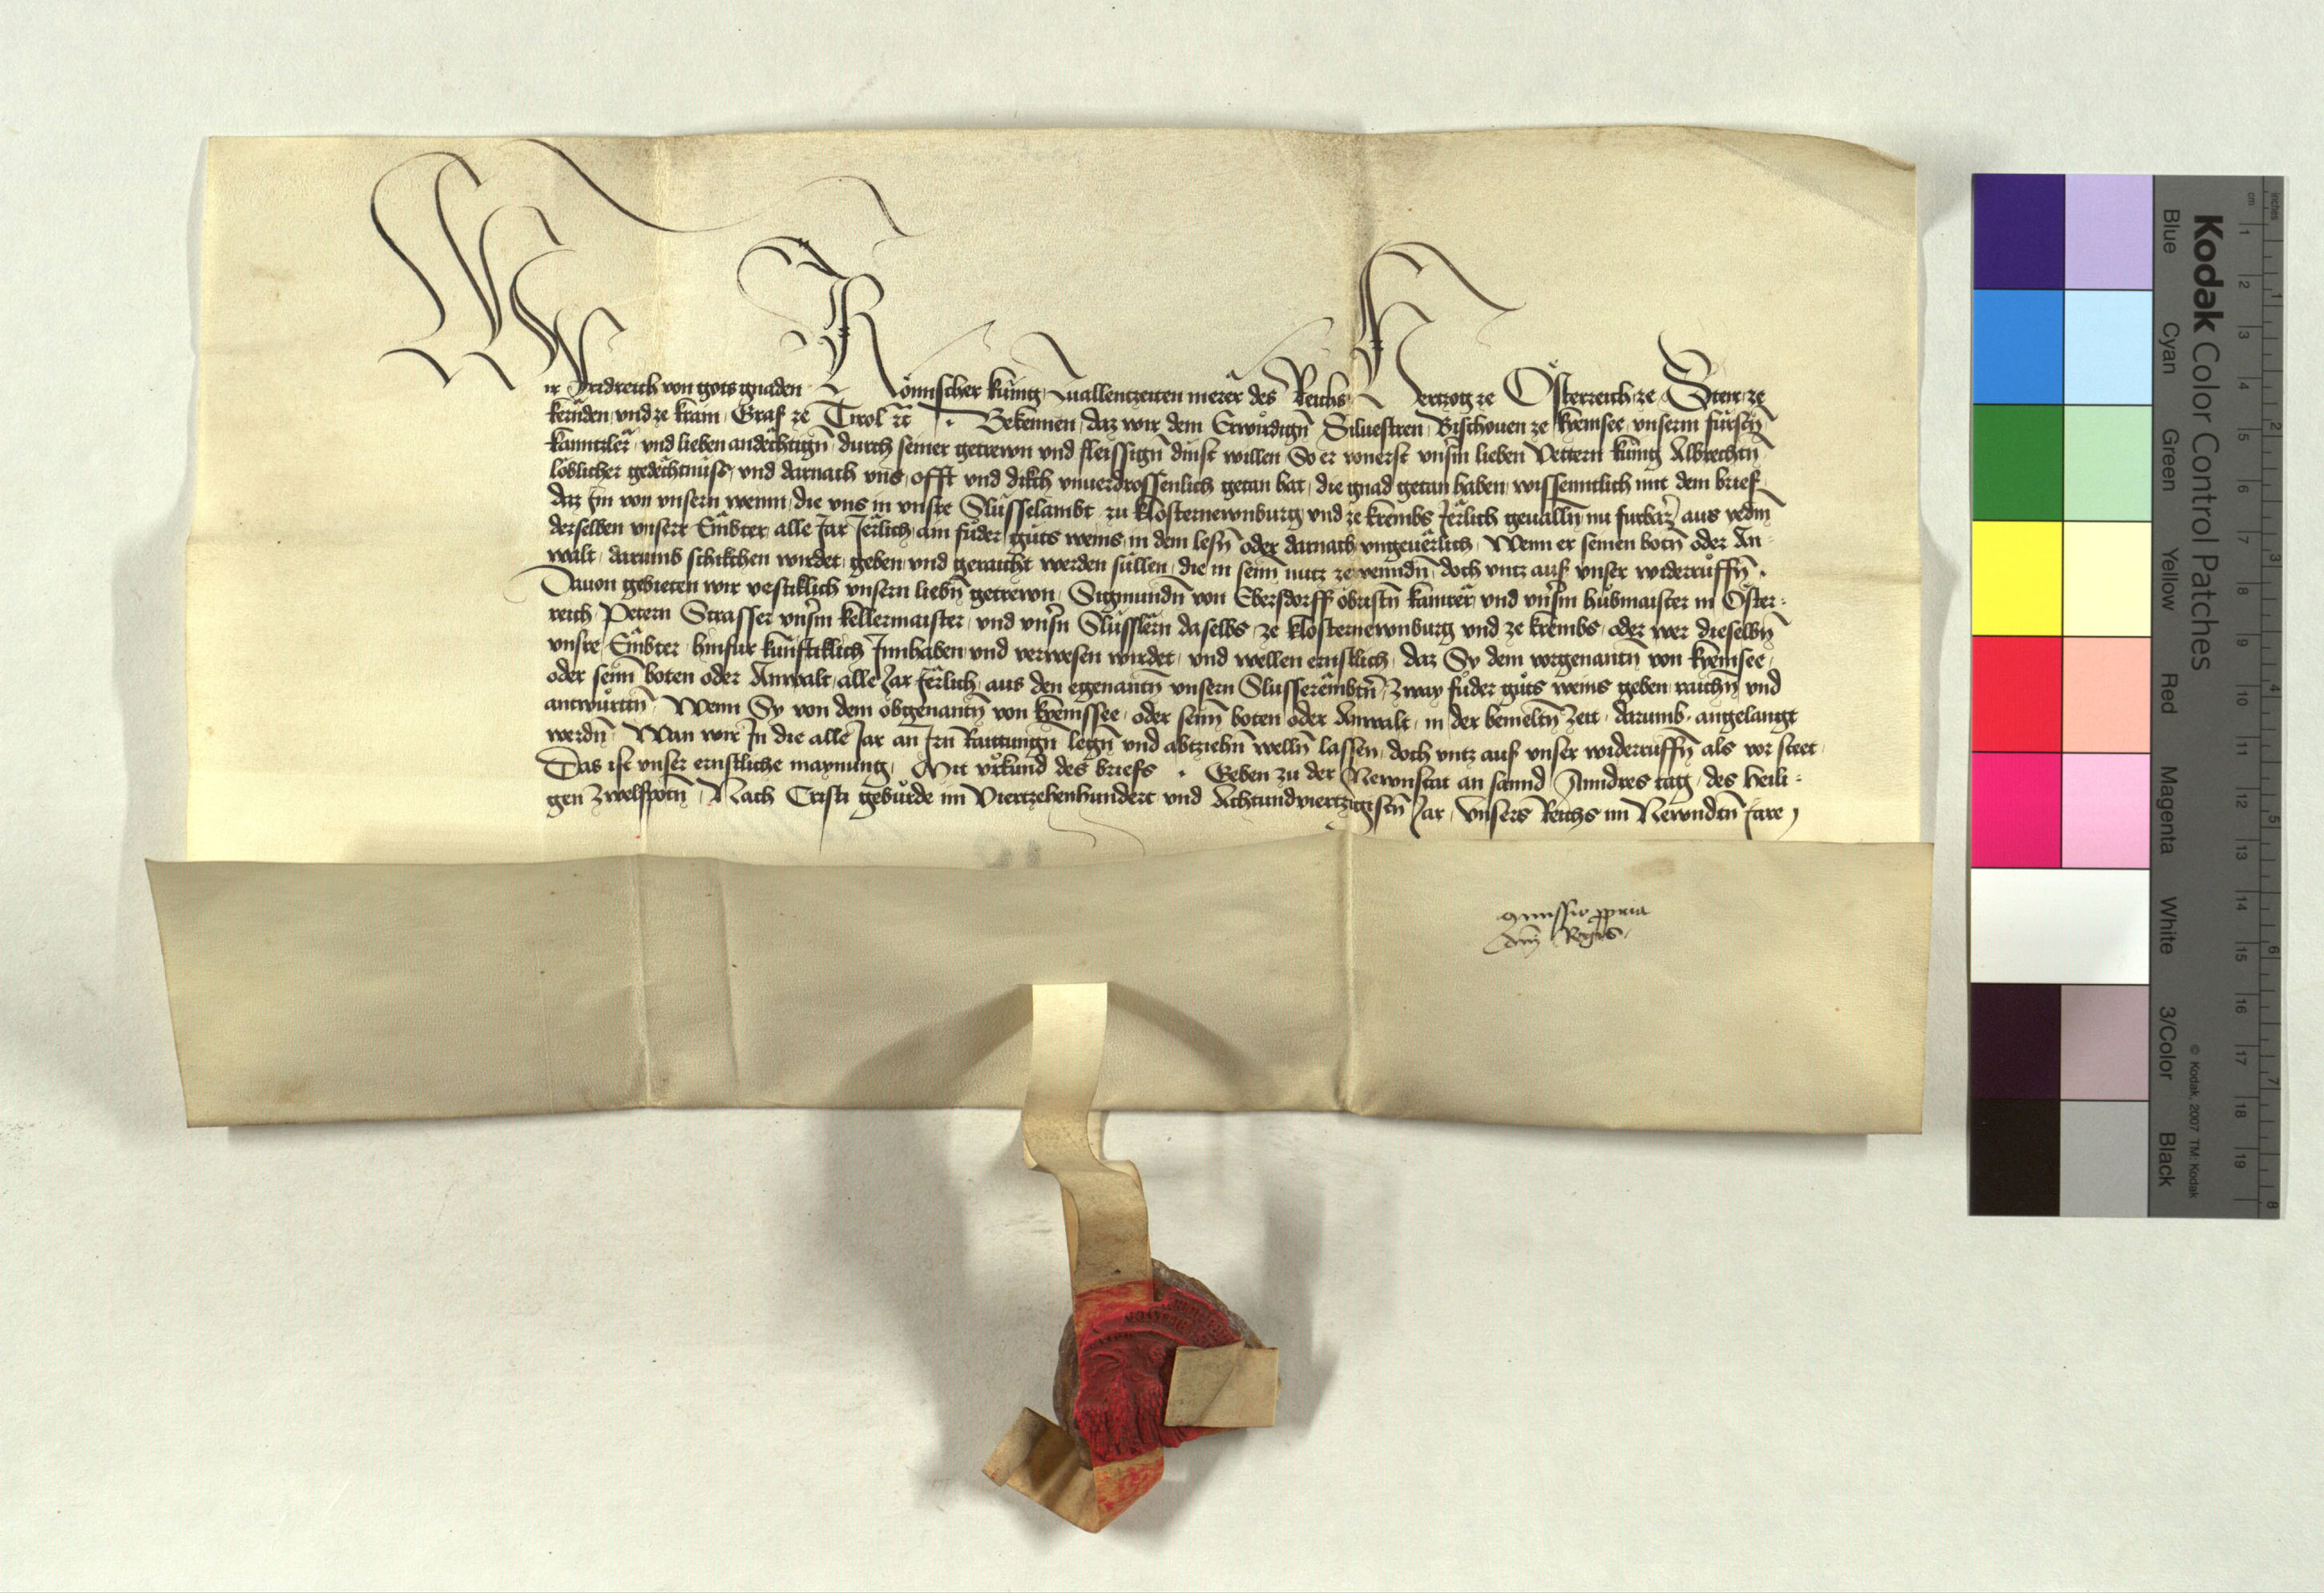 Wir Fridreich von gots gnaden Römischer kunig, Zuallentzeiten merer des Reichs, Hertzog ze Österreich, ze Steir, ze
kernden, und ze krain, Graf ze Tirol etc̃ . Bekennen, daz wir dem Erwirdigñ Siluestren, Bischouen ze kyemsee, unserm fürstñ
kanntzler, und lieben andechtigñ, durch seiner getrewn und fleissigñ dinst willen, So er vonerst unsm̃ lieben Vettern kunig Albrechtñ
löblicher gedechtnüss, und darnach uns, offt und dikch unuerdrossenlich getan hat, die gnad getan haben, wissenntlich mit dem brief,
daz Im von unsern wenn, die uns in unsre Slüsselambt zu klosternewnburg und ze krembs Jerlich geuallñ, nu furbaz̃ aus yedm̃
derselben unserr Embter, alle Jar Jerlich, ain füder güts weins, in dem lesñ oder darnach ungeuerlich, Wenn er seinen botñ oder An-
walt, darumb schikchen wirdet, geben, und geraicht werden süllen, die in seinñ nutz zewenndñ, doch untz auf unser widerrüffñ .
Dauon gebieten wir vestiklich unsern liebñ getrewn, Sigmundñ von Ebersdorff obristñ kamrer, und unsm̃ hubmaister in Öster-
reich, Petern Strasser unsm̃ kellermaister, und unsñ Slüsslern daselbs, ze klosternewnburg und ze krembs, oder wer dieselbñ
unsre Embter, hinfur kunftiklich Innhaben, und verwesen wirdet, und wellen ernstlich, daz Sy dem vorgenantñ von kyemsee,
oder seinñ boten oder Anwalt, alle Jar Jerlich, aus den egenantñ unsern Slusserembtñ, Zway füder güts weins geben, raichñ und
antwurttñ, Wenn Sy von dem obgenantñ von kyemssee, oder seinñ boten oder Anwalt, in der bemeltñ zeit, darumb angelangt
werdñ, Wan wir In die alle Jar an Irñ Raittungñ legñ und abziehñ wellñ lassen, doch untz auf unser widerruffñ als vor steet,
Das ist unser ernstliche maynung, Mit urkund des briefs . Geben zu der Newnstat an sannd Anndres tag, des heili-
gen Zwelfpotñ, Nach Cristi gebürde im Viertzehenhundert und Achtundviertzigistñ Jar, Unsers Reichs im Newndtñ Jare
Commissio ppria
dñi Regis
Kodak Color Control Patches
Blue Cyan Green Yellow Red Magenta White 3/Color Black
© Kodak, 2007 TM: Kodak
cm 1 2 3 4 5 6 7 8 9 10 11 12 13 14 15 16 17 18 19
inches 1 2 3 4 5 6 7 8